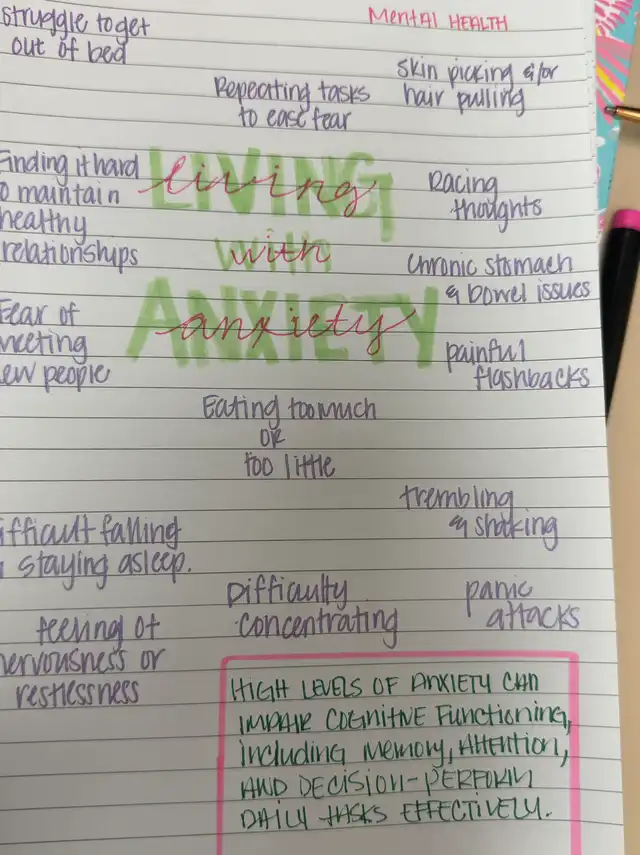 Mental HEALTH
struggle to get
out of bed
Repeating tasks
to ease fear
skin picking &/or
hair pulling
Finding it hard
to maintain
healthy
relationships
LIVING
living
with
with
ANXIETY
anxiety
Racing
thoughts
Chronic stomach
& bowel issues
Fear of
meeting
new people
painful
flashbacks
Eating too much
OR
too little
trembling
& shaking
difficult falling
staying asleep.
Difficulty
concentrating
panic
attacks
feeling of
nervousness or
restlessness
HIGH LEVELS OF ANXIETY CAN
IMPAIR COGNITIVE Functioning,
including memory, ATTENTION,
AND DECISION-PERFORM
DAILY TASKS EFFECTIVELY.